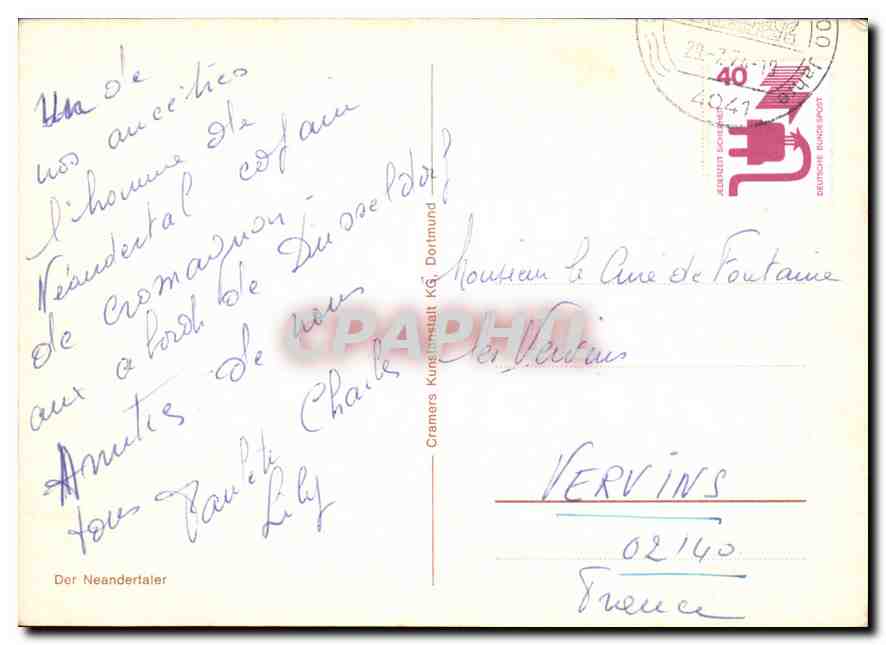 Un de
nos ancêtres
l'homme de
Néandertal cousin
de cromagnon -
aux abords de Düsseldorf
Amitiés de nous
tous Paulette Charles
Lily
Der Neandertaler
Cramers Kunstanstalt KG, Dortmund
CPAPHIL
29-7.74-12
4041
00 Jahre
40
JEDERZEIT SICHERHEIT
DEUTSCHE BUNDESPOST
Monsieur le Curé de Fontaine
les Vervins
VERVINS
02140
France